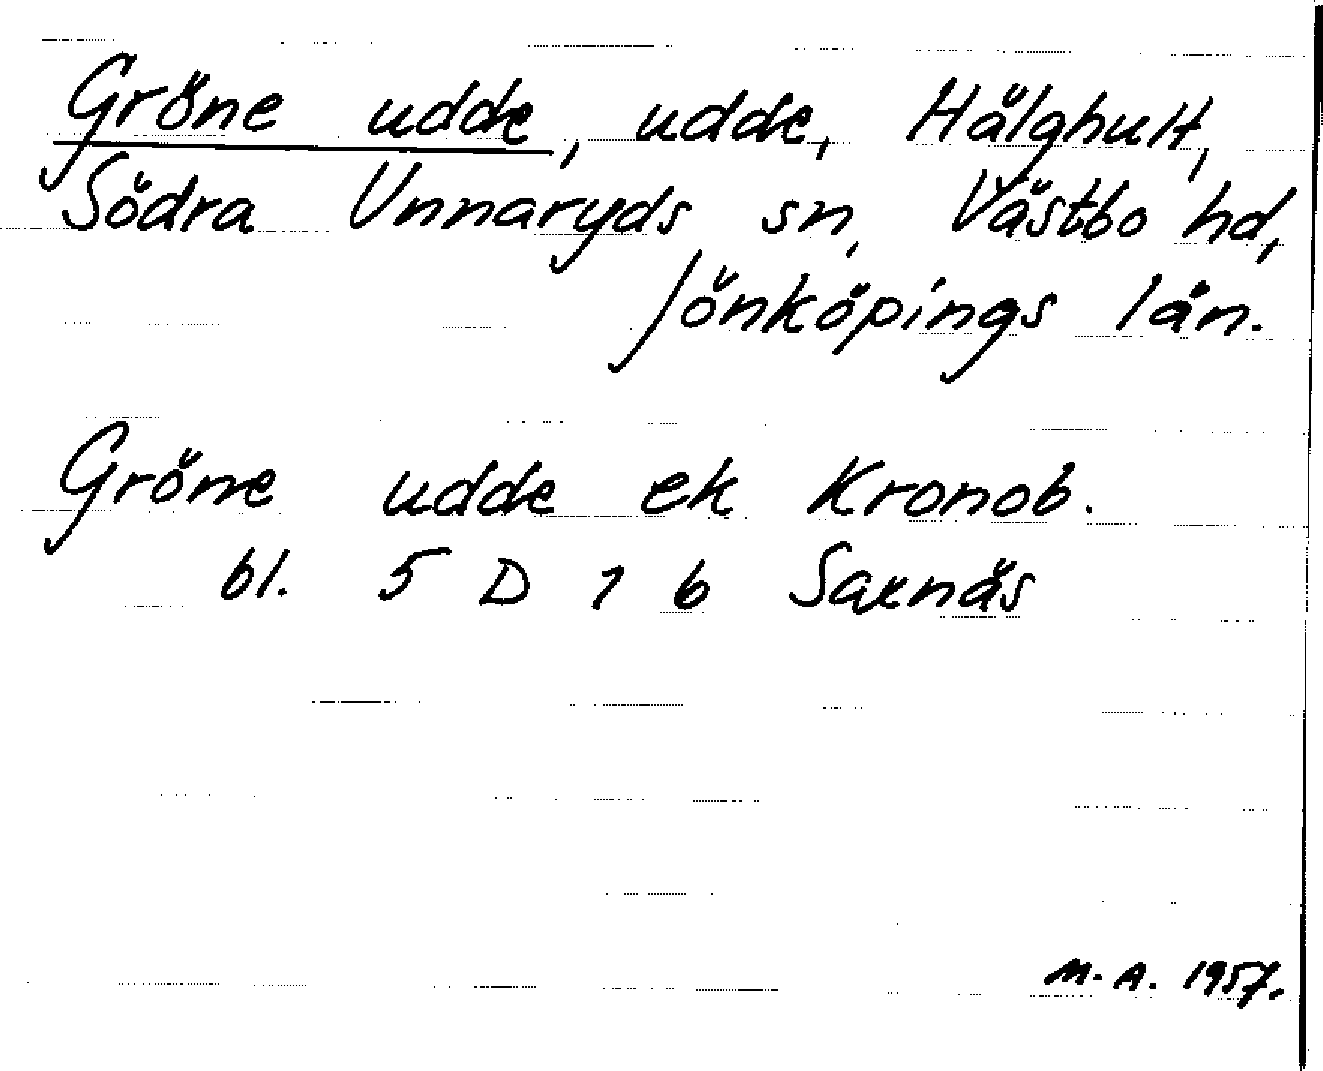 Gröne udde, udde, Hälghult,
Södra Unnaryds sn, Västbo hd,
Jönköpings län.
Gröne udde ek Kronob.
bl. 5 D 1 b Saxnäs
M. A. 1957.